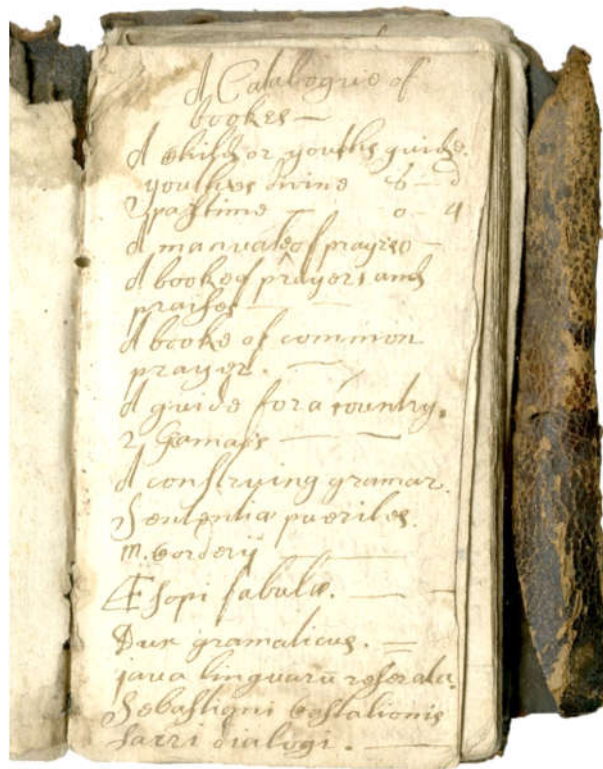 A Catalogue of
bookes —
A child or youths guide.
youthes divine 6 — d
pastime — 0 — 4
A manuale of prayres —
A booke of prayers and
praises — —
A booke of common
prayer. — —
A guide for a country.
2 Gamars — —
A construing gramar.
Sententiæ pueriles.
M. Corderij — —
Æsopi fabulæ. — —
Dux gramaticus. =
janua linguarū reserata.
Sebastiani Castalionis
sacri dialogi. —